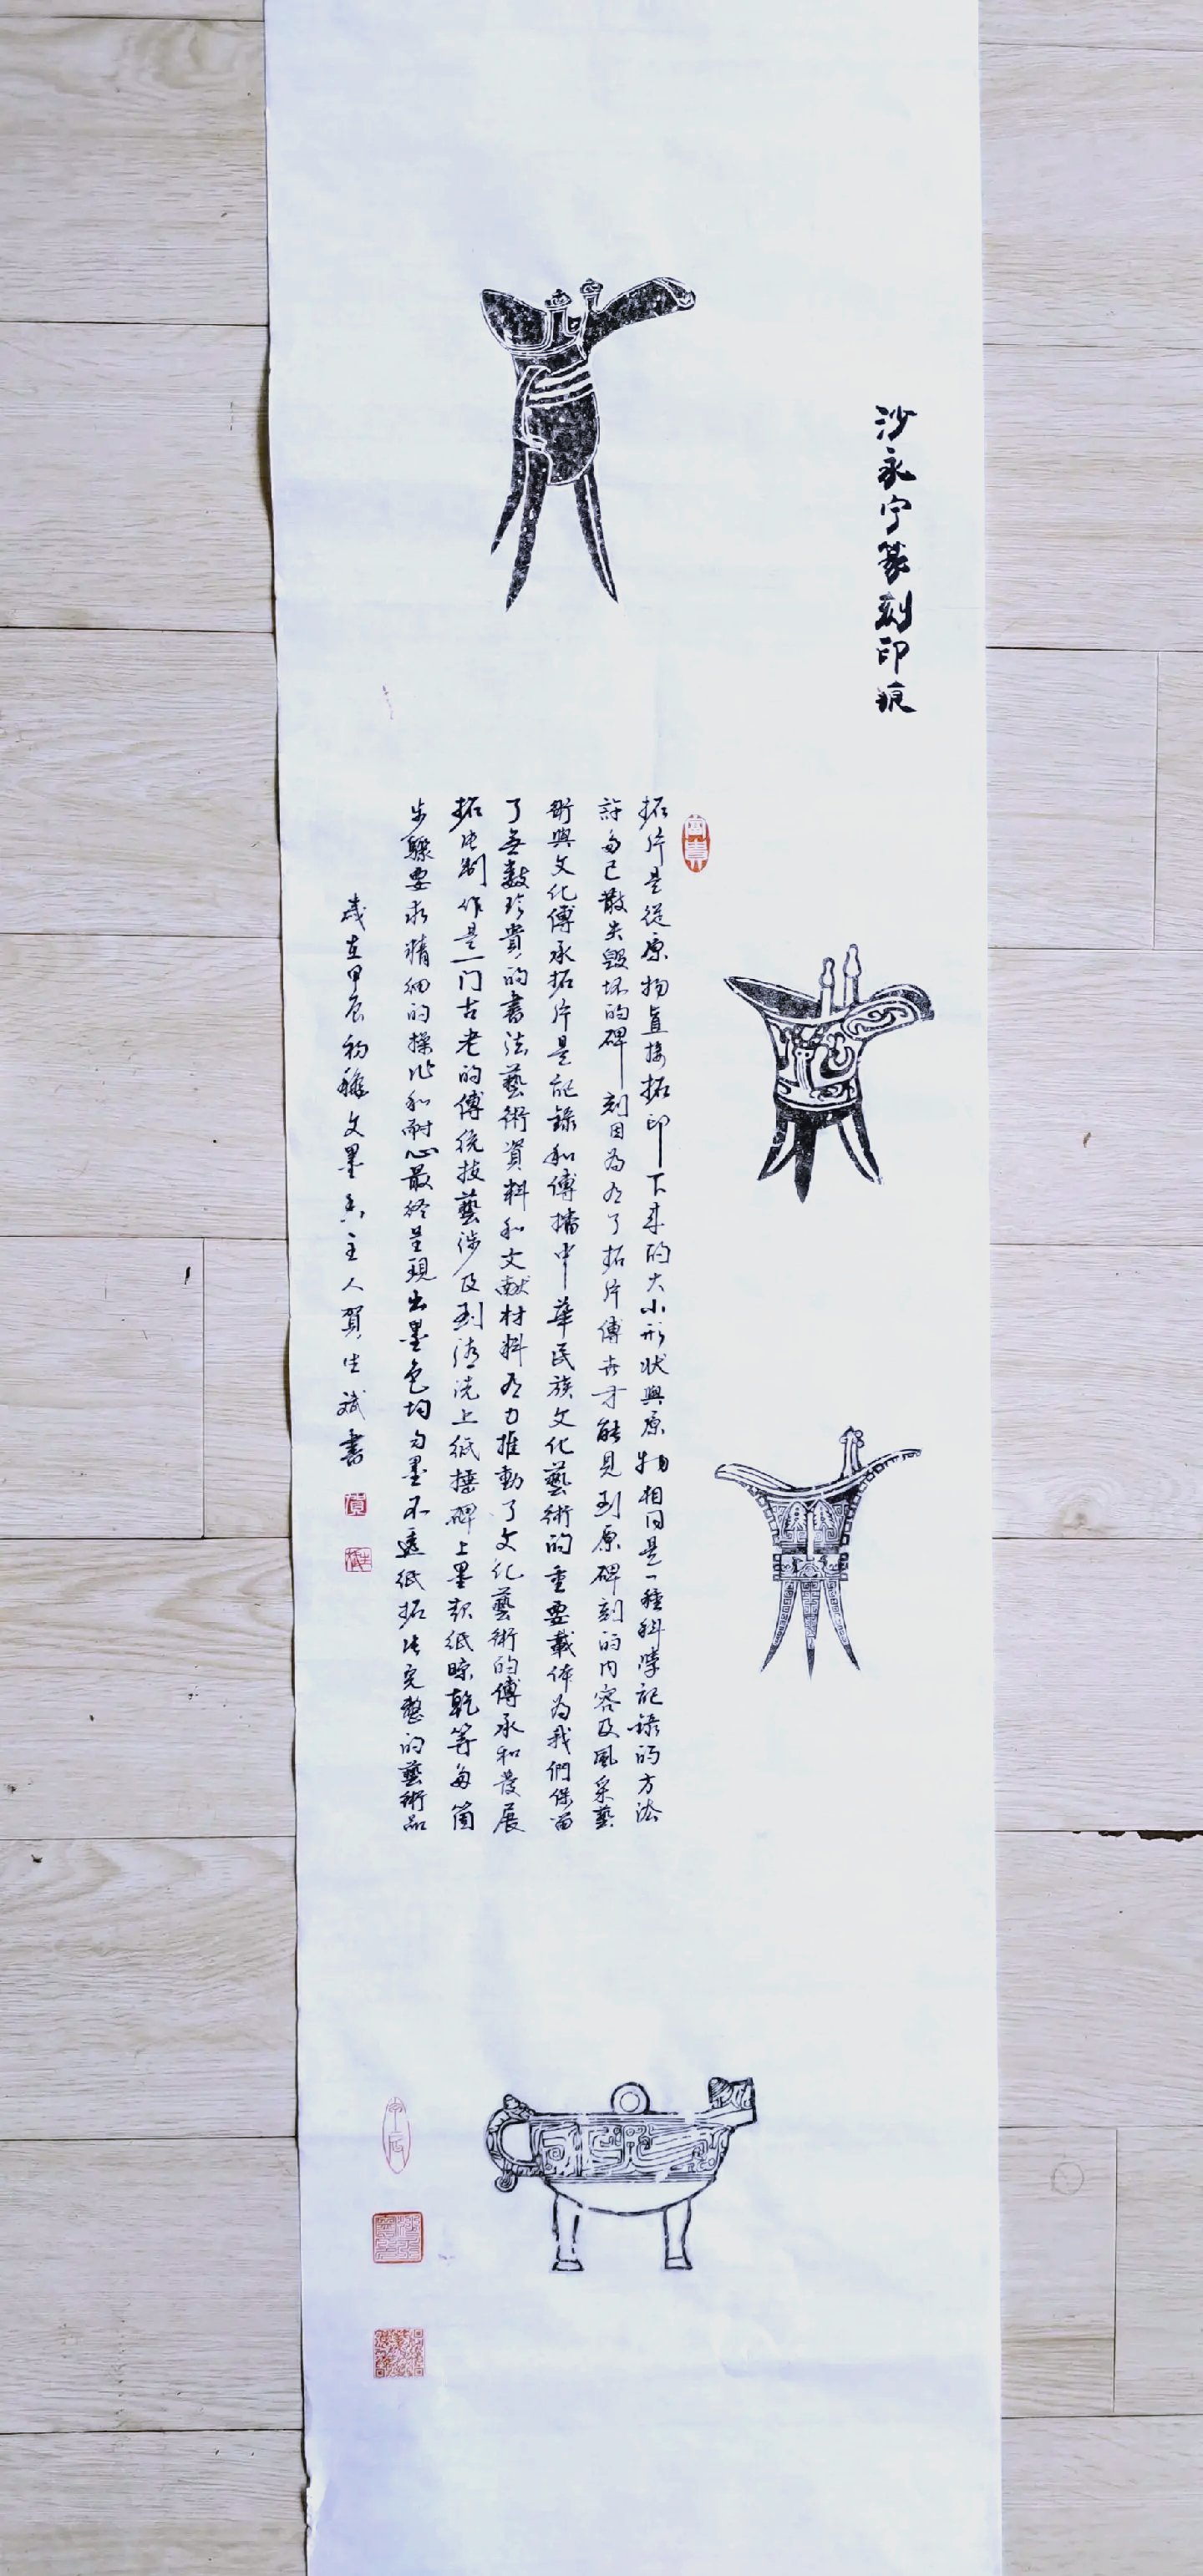 沙永宁篆刻印痕
拓片是從原物直接拓印下来的大小形状與原物相同是一種科学記錄的方法
許多已散失毁坏的碑刻因為有了拓片傳世才能見到原碑刻的内容及風采藝
術與文化傳承拓片是記錄和傳播中華民族文化藝術的重要載体為我們保留
了無數珍貴的書法藝術資料和文献材料有力推動了文化藝術的傳承和發展
拓片制作是一门古老的傳統技藝涉及到清洗上紙捶碑上墨揭紙晾乾等多箇
步驟要求精细的操作和耐心最终呈現出墨色均匀墨不透紙拓片完整的藝術品
歲在甲辰初穐文墨主人賀生斌書